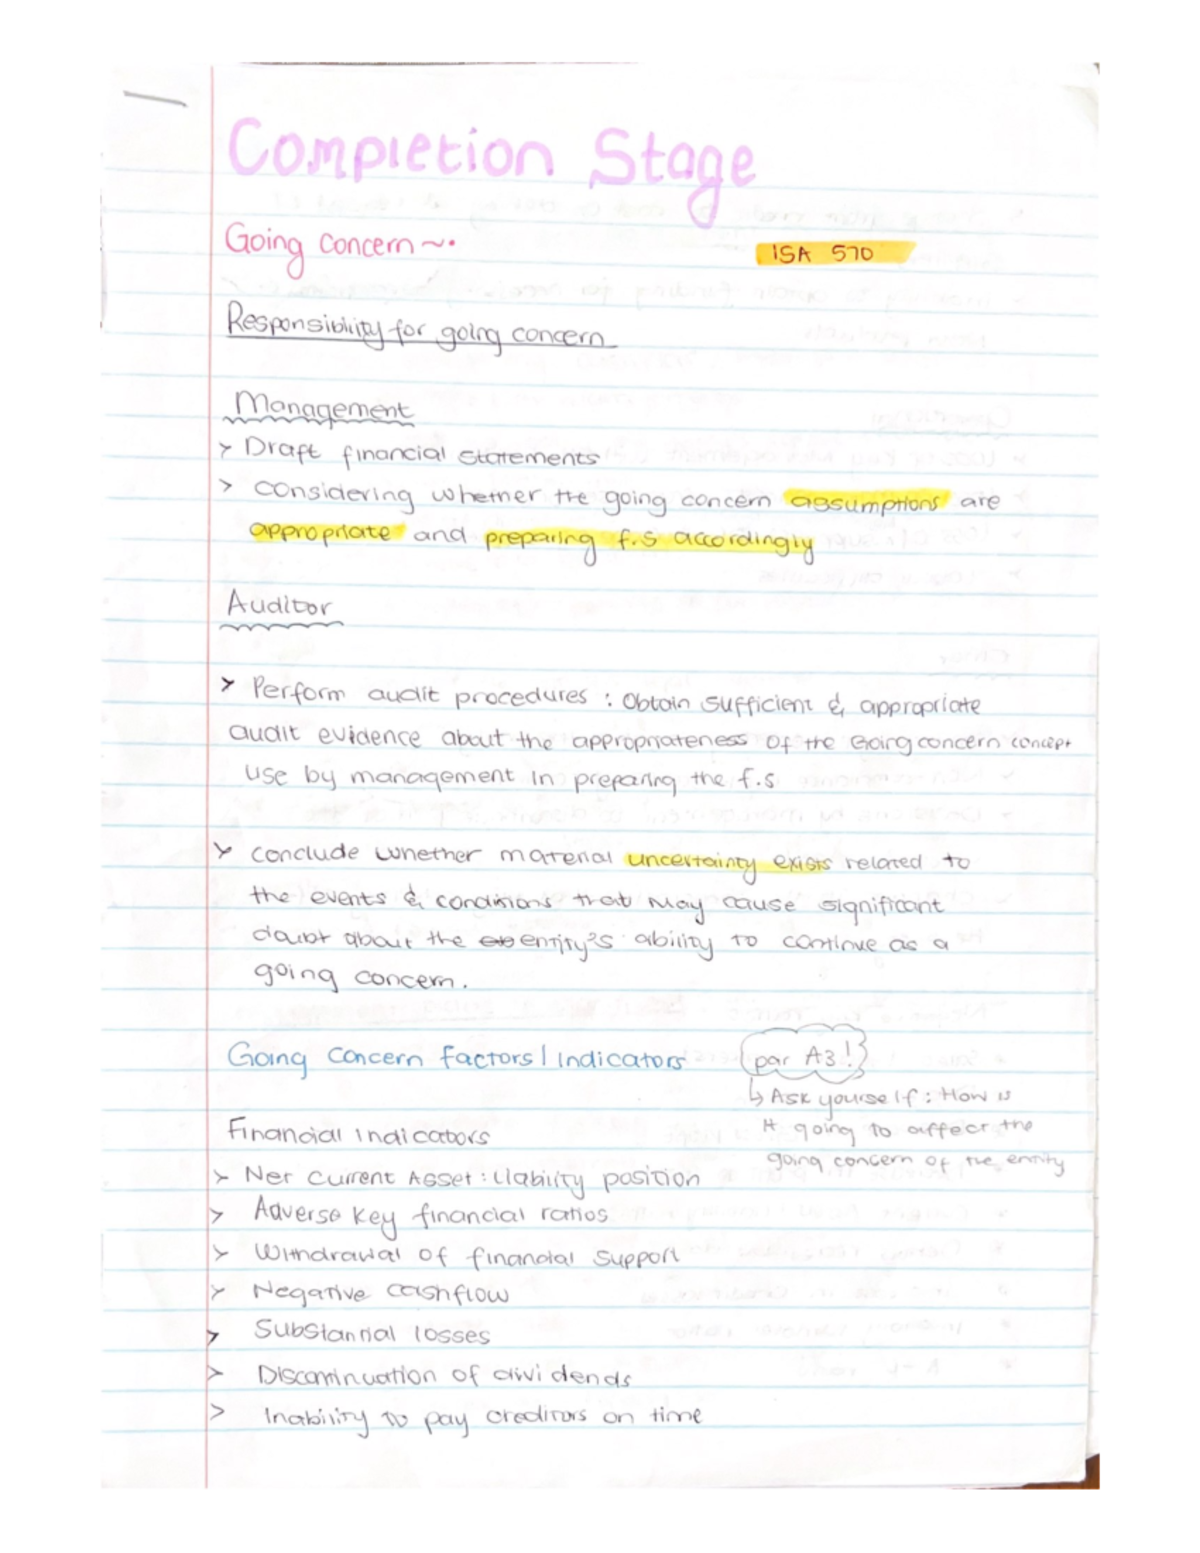 Completion Stage
Going concern ~•
ISA 570
Responsibility for going concern
Management
> Draft financial statements
> considering whether the going concern assumptions are
appropriate and preparing f.s accordingly
Auditor
> Perform audit procedures : Obtain sufficient & appropriate
audit evidence about the appropriateness of the Going concern concept
use by management in preparing the f.s
> conclude whether material uncertainty exists related to
the events & conditions that may cause significant
doubt about the entity's ability to continue as a
going concern.
Going concern factors / Indicators
par A3!
↳ Ask yourself : How is
it going to affect the
going concern of the entity
Financial Indicators
> Net Current Asset : Liability position
> Adverse key financial ratios
> Withdrawal of financial support
> Negative cashflow
> Substantial losses
> Discontinuation of dividends
> Inability to pay creditors on time